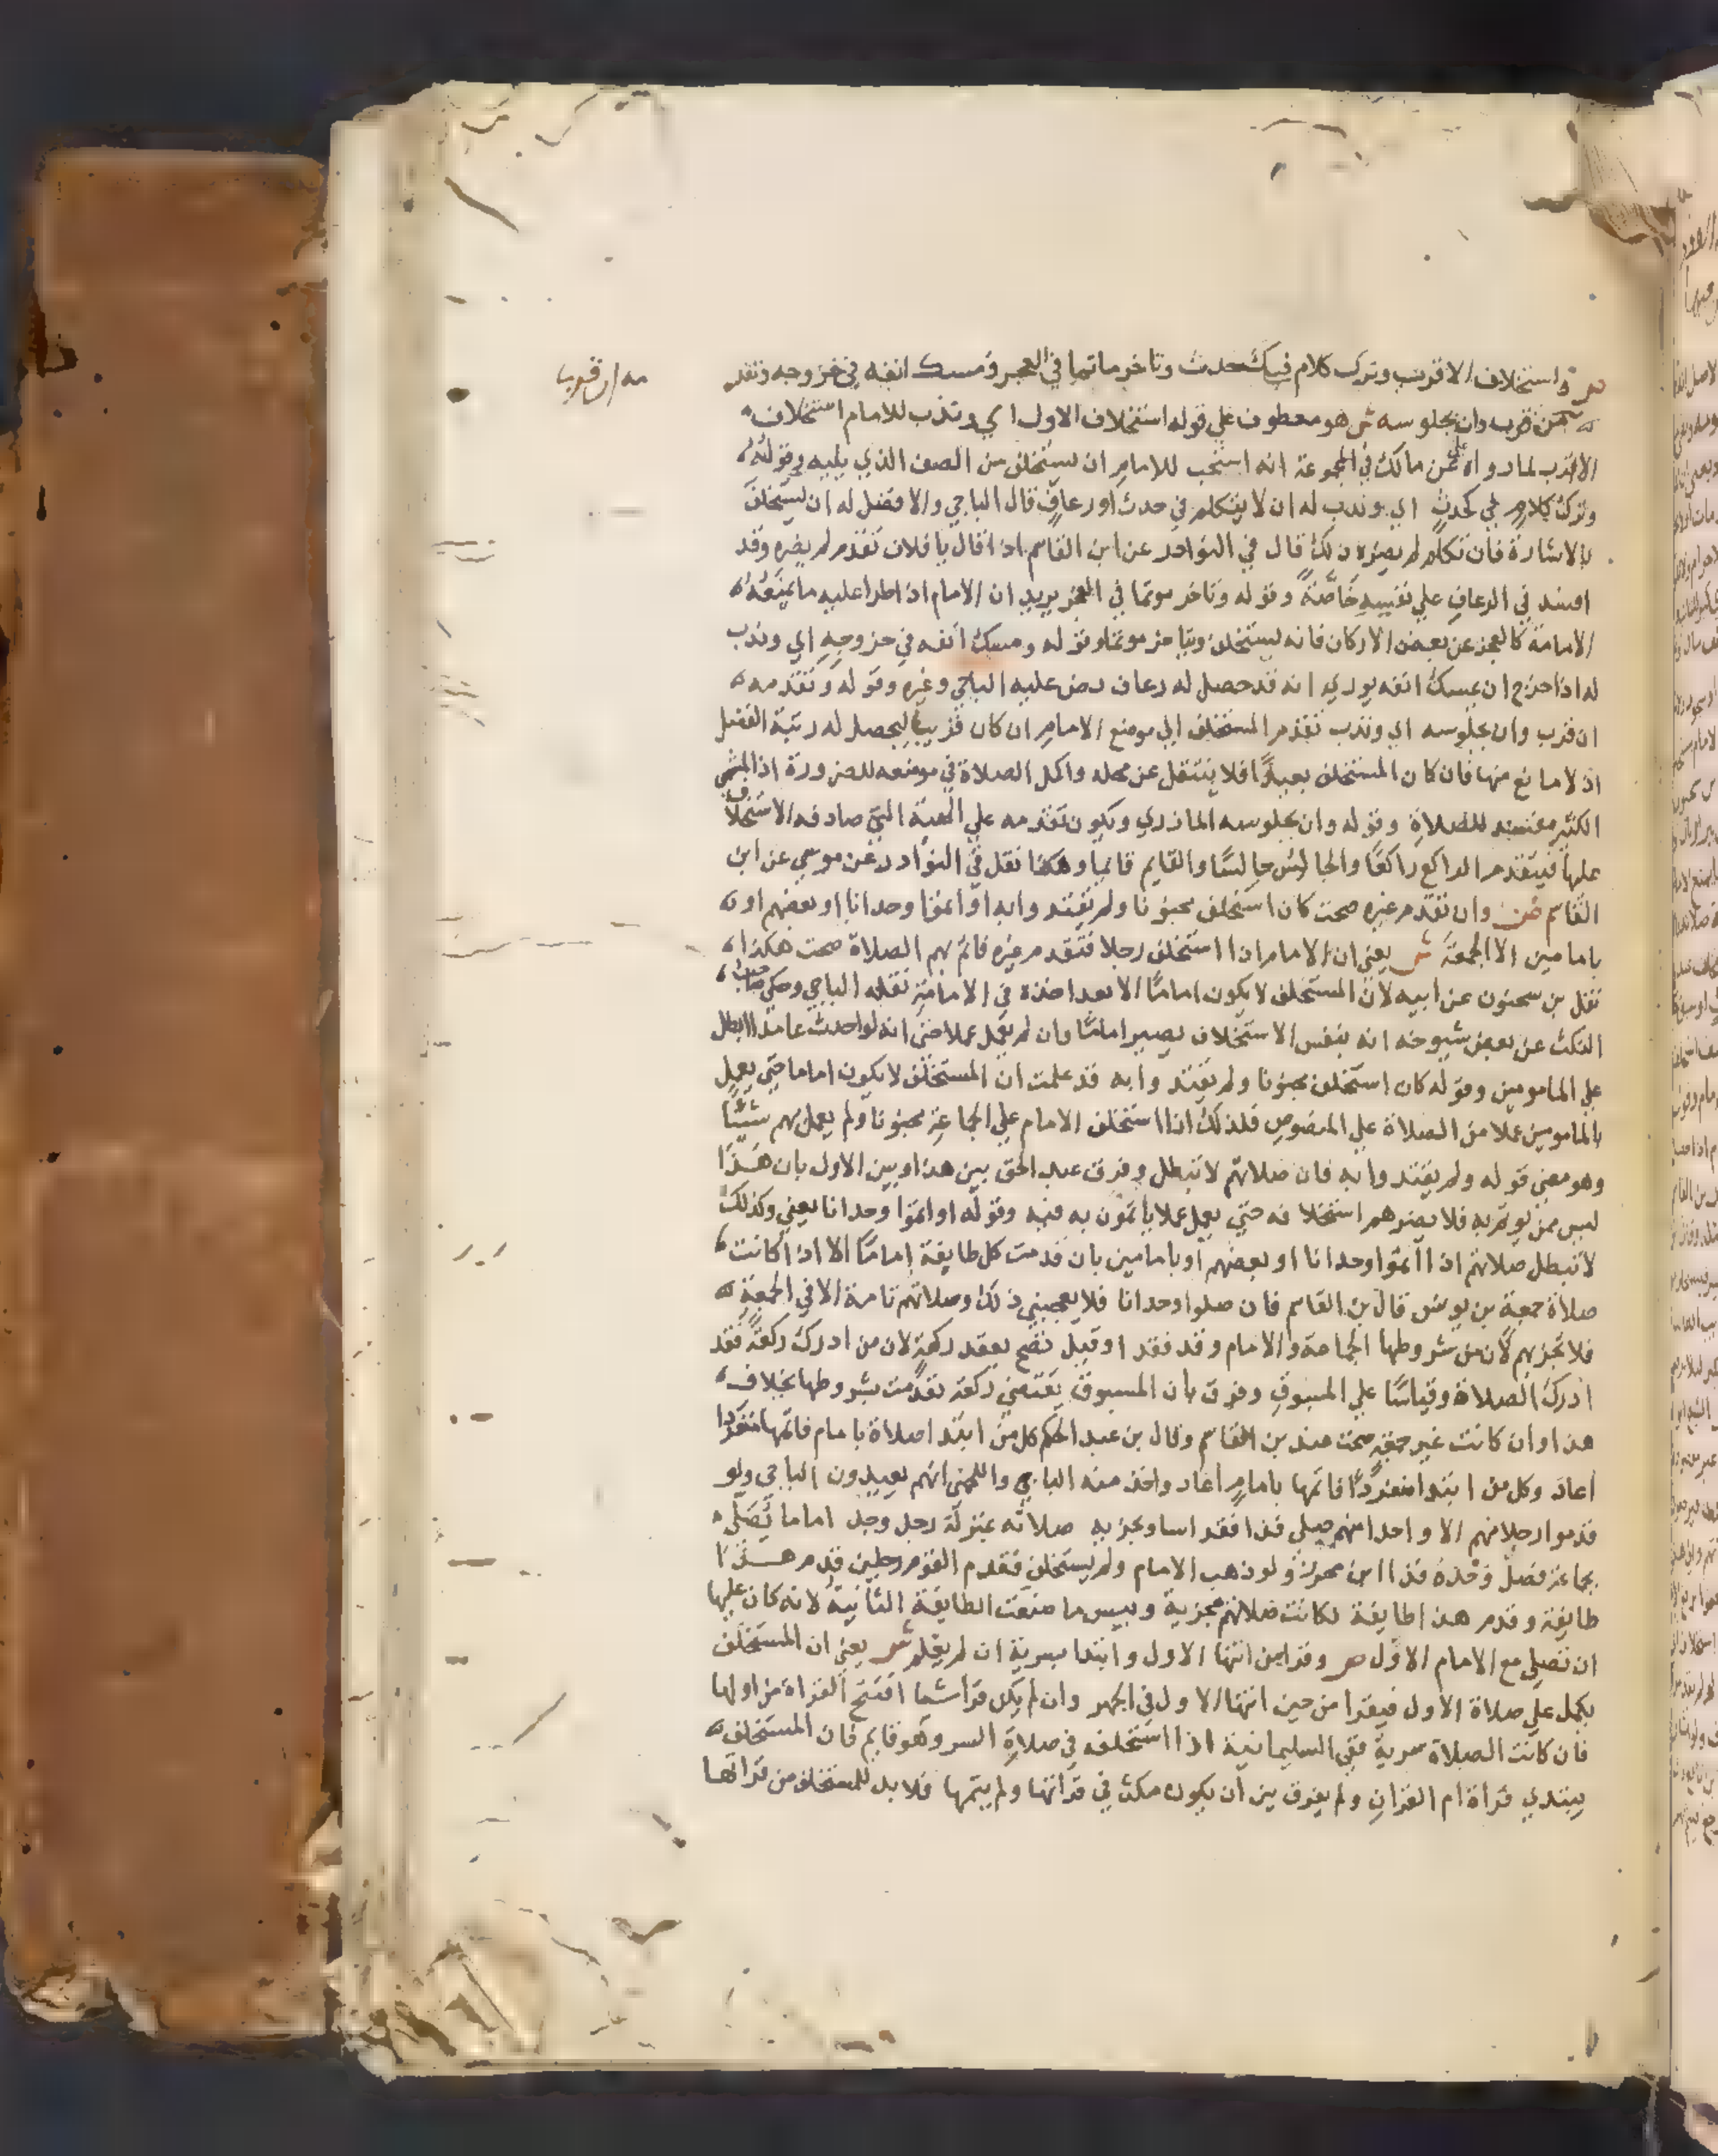 ص واستخلاف الاقرب وترك كلام في كحدث وتاخر ماتما في العجز ومسك انفه في خروجه وتقد
مه ان قرب وان بجلوسه ش هو معطوف علي قوله استخلاف الاول اي وندب للامام استخلاف
الاقرب لما رواه علي عن مالك في المجموعة انه استحب للامام ان يستخلف من الصف الذي يليه وقوله
وترك كلام في كحدث اي وندب له ان لا يتكلم في حدث او رعاف قال الباجي والافضل له ان يستخلف
بالاشارة فان تكلم لم يضره ذلك قال في النوادر عن ابن القاسم اذا قال يا فلان تقدم لم يضره وقد
افسد في الرعاف علي نفسه خاصة وقوله وتاخر موتما في العجز يريد ان الامام اذا طرا عليه ما يمنعه
الامامة كالعجز عن بعض الاركان فانه يستخلف ويتاخر موتما وقوله ومسك انفه في خروجه اي وندب
له اذا خرج ان يمسك انفه يوري انه قد حصل له رعاف نص عليه الباجي وغيره وقوله وتقدمه
ان قرب وان بجلوسه اي وندب تقدم المستخلف الي موضع الامام ان كان قريبا ليحصل له رتبة الفضل
اذ لا مانع منها فان كان المستخلف بعيدا فلا ينتقل عن محله واكمل الصلاة في موضعه للضرورة اذ المشي
الكثير مفسد للصلاة وقوله وان بجلوسه المازري ويكون تقدمه علي الهيئة التي صادفه الاستخلاف
عليها فيتقدم الراكع راكعا والجالس جالسا والقايم قايما وهكذا نقل في النوادر عن موسي عن ابن
القاسم ص وان تقدم غيره صحت كان استخلف مجنونا ولم يقتدوا به او اتموا وحدانا او بعضهم او
بامامين الا الجمعة ش يعني ان الامام اذا استخلف رجلا فتقدم غيره فاتم بهم الصلاة صحت هكذا
نقل بن سحنون عن ابيه لان المستخلف لا يكون اماما الا بعد اخذه في الامامة نقله الباجي وحكي صاحب
النكت عن بعض شيوخه انه بنفس الاستخلاف يصير اماما وان لم يعمل عملا حتي انه لو احدث عامدا ابطل
علي المامومين وقوله كان استخلف مجنونا ولم يقتدوا به قد علمت ان المستخلف لا يكون اماما حتي يعمل
بالمامومين عملا من الصلاة علي المنصوص فلذلك اذا استخلف الامام علي الجماعة مجنونا ولم يعمل بهم شيئا
وهو معني قوله ولم يقتدوا به فان صلاتهم لا تبطل وفرق عبد الحق بين هذا وبين الاول بان هذا
ليس ممن يوتم به فلا يضرهم استخلافه حتي يعمل عملا ياتمون به فيه وقوله او اتموا وحدانا يعني وكذلك
لا تبطل صلاتهم اذا اتموا وحدانا او بعضهم او بامامين بان قدمت كل طايفة اماما الا اذا كانت
صلاة جمعة بن يونس قال بن القاسم فان صلوا وحدانا فلا يعجبني ذلك وصلاتهم تامة الا في الجمعة
فلا تجزيهم لان من شروطها الجماعة والامام وقد فقد او قيل تصح بعقد ركعة لان من ادرك ركعة فقد
ادرك الصلاة وقياسا علي المسبوق وفرق بان المسبوق يقضي ركعة تقدمت بشروطها بخلاف
هذا وان كانت غير جمعة صحت عند بن القاسم وقال بن عبد الحكم كل من ابتدا صلاة بامام فاتمها منفردا
اعاد وكل من ابتدا منفردا فاتمها بامام اعاد واخذ منه الباجي واللخمي انهم يعيدون الباجي ولو
قدموا رجلا منهم الا واحدا منهم صلي فذا فقد اسا وتجزيه صلاته بمنزلة رجل وجد اماما يصلي
بجماعة فصلي وحده فذا ابن محرز ولو ذهب الامام ولم يستخلف فقدم القوم رجلين قدم هذا
طايفة وقدم هذا طايفة لكانت صلاتهم مجزية وبيس ما صنعت الطايفة الثانية لانه كان عليها
ان تصلي مع الامام الاول ص وقرا من انتها الاول وابتدا بسرية ان لم يعلم ش يعني ان المستخلف
يكمل علي صلاة الاول فيقرا من حين انتها الاول في الجهر وان لم يكن قرا شيا افتتح القراة من اولها
فان كانت الصلاة سرية ففي السليمانية اذا استخلفه في صلاة السر وهو قايم فان المستخلف
يبتدي قراة ام القران ولم يفرق بين ان يكون مكث في قراتها ولم يتمها فلا بد للمستخلف من قراتها
مه ان قرب